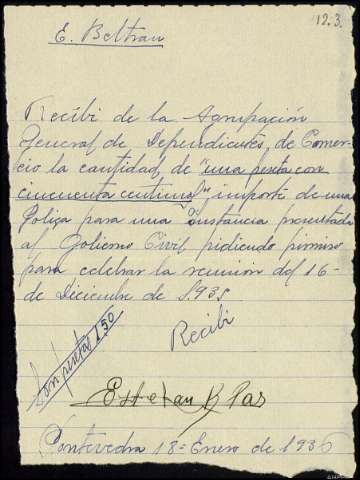 12.3.
E. Beltrán
Recibí de la Agrupación
General de Dependientes de Comer-
cio la cantidad de "una peseta con
cincuenta centimos" importe de una
Póliza para una Instancia presentada
al Gobierno Civil pidiendo permiso
para celebrar la reunión del 16-
de Diciembre de 1.935
Recibí
Son pesetas 1'50
Esteban B Pas
Pontevedra 18 = Enero de 1936